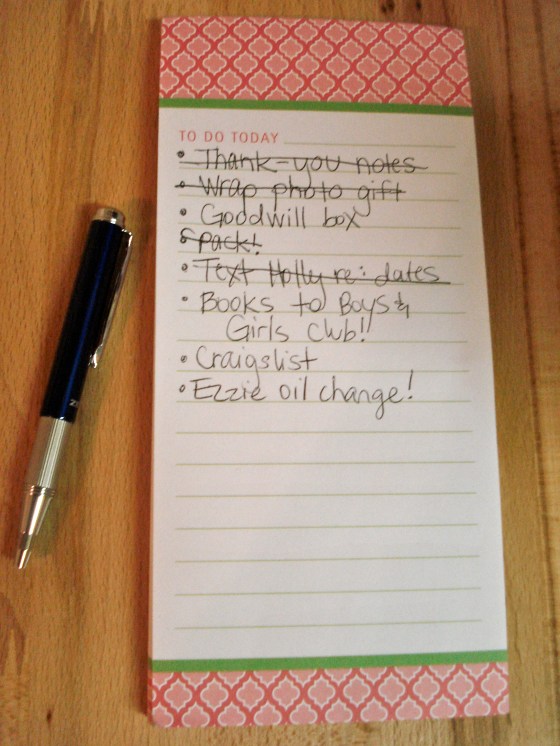 TO DO TODAY
• Thank-you notes
• Wrap photo gift
• Goodwill box
• Pack!
• Text Holly re: dates
• Books to Boys &
Girls Club!
• Craigslist
• Ezzie oil change!